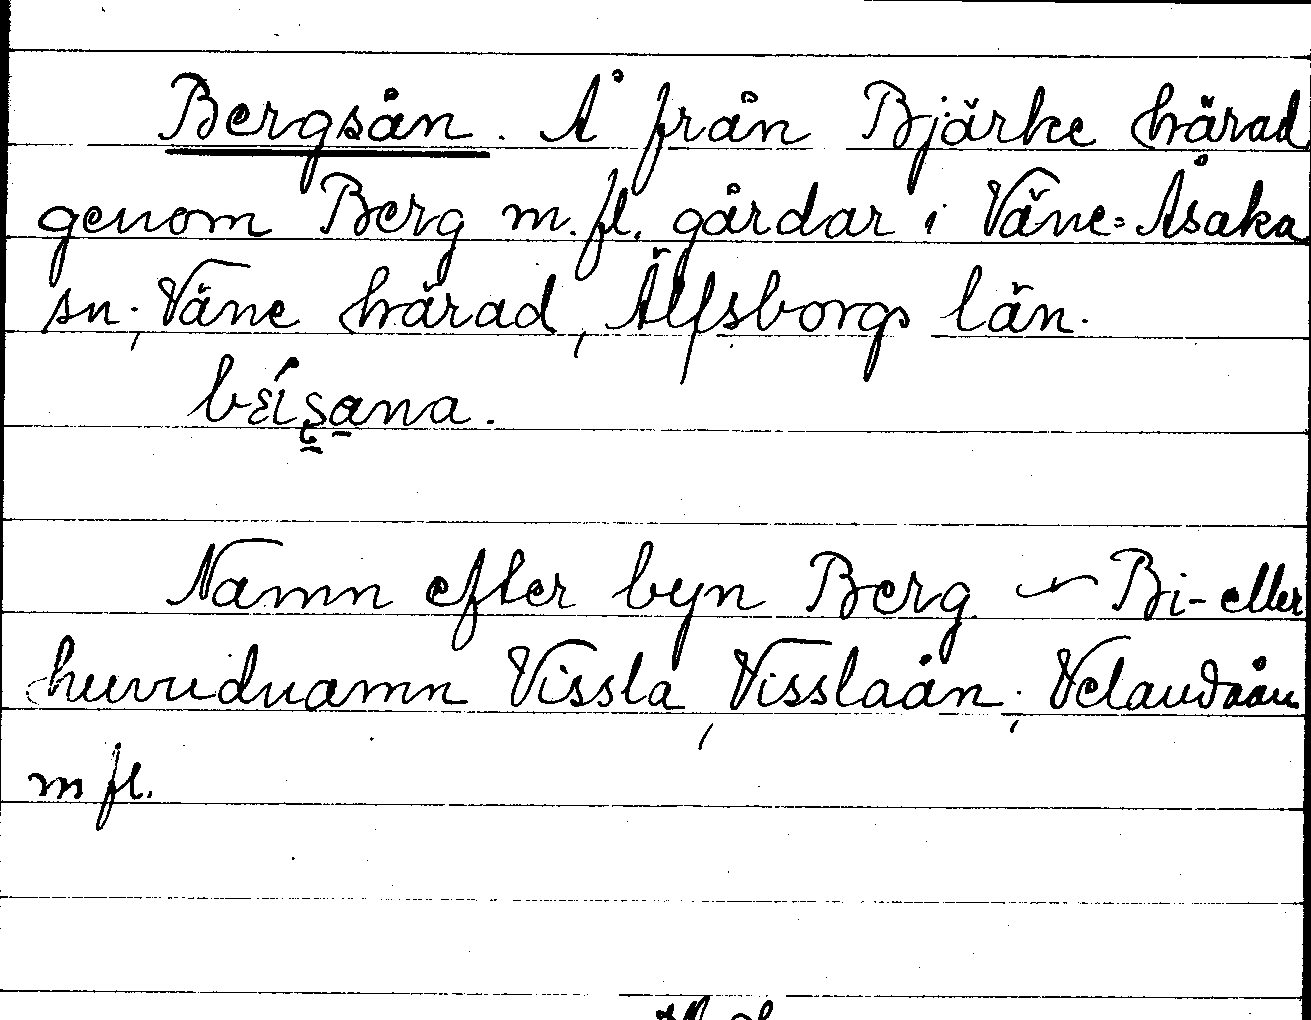 Bergsån. Å från Bjärke härad
genom Berg m.fl. gårdar i Väne=Åsaka
sn., Väne härad, Älfsborgs län.
Namn efter byn Berg – Bi- eller
huvudnamn Vissla, Visslaån, Velandaån
m fl.